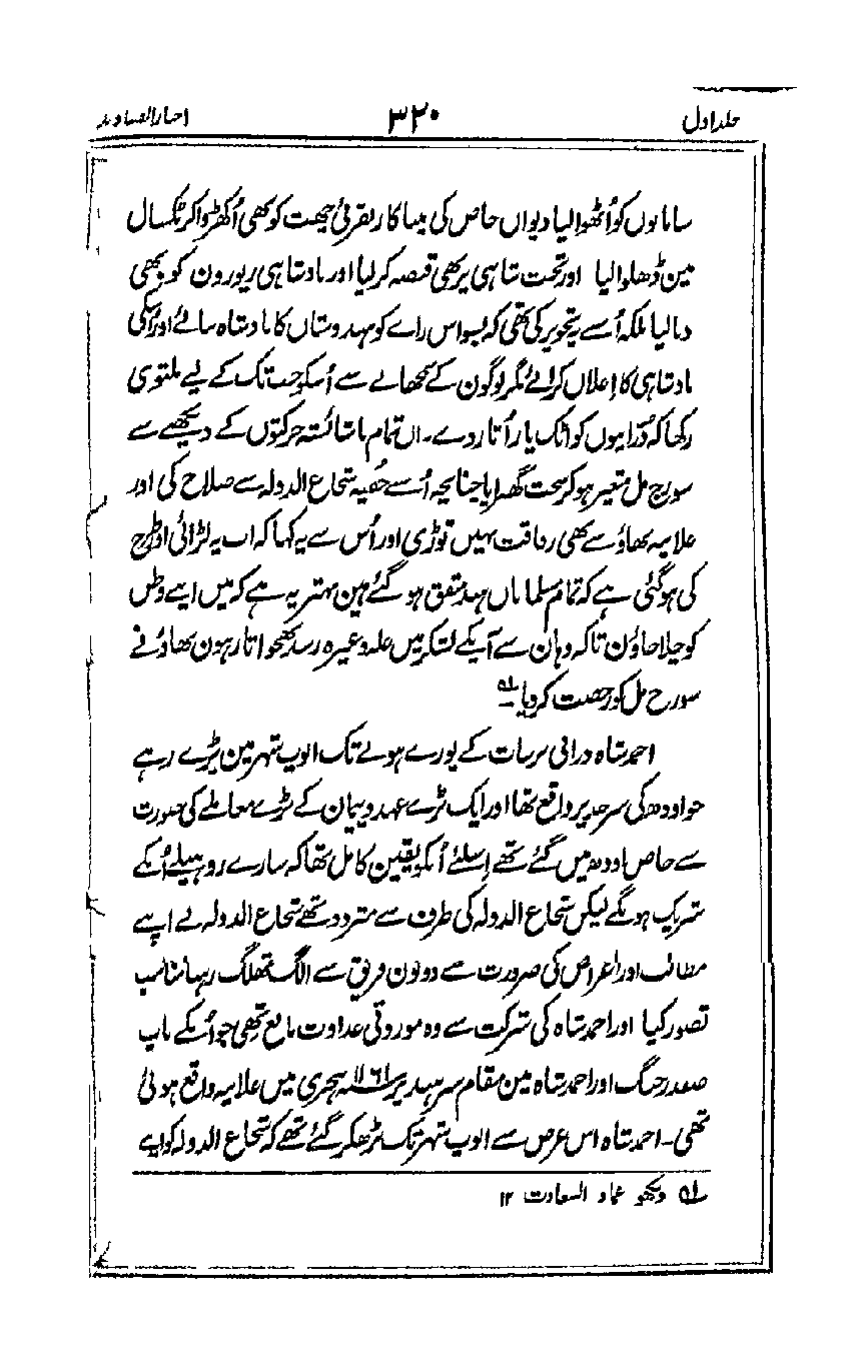 جلد اول ۳۲۰ اخبار الصنادید
سامانوں کو اُٹھوا لیا دیوان خاص کی میناکار نقرئی چھت کو بھی اُکھڑوا کر ٹکسال
مین ڈھلوا لیا اور تخت شاہی پر بھی قبضہ کر لیا اور بادشاہی زیورون کو بھی
دبا لیا بلکہ اُسے یہ تجویز کی تھی کہ بسواس راے کو ہندوستان کا بادشاہ بنائے اور اُسکی
بادشاہی کا اعلان کرائے مگر لوگون کے سمجھانے سے اُسکو جب تک کے لیے ملتوی
رکھا کہ دُرانیوں کو اٹک پار اُتار دے۔ ان تمام ناشائستہ حرکتوں کے دیکھنے سے
سورج مل متغیر ہو کر سخت گھبرایا چنانچہ اُسنے خفیہ شجاع الدولہ سے صلاح کی اور
علانیہ بھاؤ سے بھی رفاقت نہیں توڑی اور اُس سے یہ کہا کہ اب یہ لڑائی اور طرح
کی ہو گئی ہے کہ تمام مسلمانان ہند متفق ہو گئے ہین بہتر یہ ہے کہ میں اپنے وطن
کو چلا جاؤن تاکہ وہان سے آپکے لشکر میں غلہ وغیرہ رسد بھجواتا رہون بھاؤ نے
سورج مل کو رخصت کر دیا ۱ـہ
احمد شاہ درانی برسات کے پورے ہونے تک انوپ شہر مین پڑے رہے
جو اودھ کی سرحد پر واقع تھا اور ایک بڑے عہد و پیمان کے بڑے معاملے کی ضرورت
سے خاص اودھ میں گئے تھے اِسلئے اُنکو یقین کامل تھا کہ سارے روہیلے اُنکے
شریک ہونگے لیکن شجاع الدولہ کی طرف سے متردد تھے شجاع الدولہ نے اپنے
مطالب اور اغراض کی ضرورت سے دونون فریق سے الگ تھلگ رہنا مناسب
تصور کیا اور احمد شاہ کی شرکت سے وہ موروثی عداوت مانع تھی جو اُنکے باپ
صفدر جنگ اور احمد شاہ مین مقام سرہند پر ۱۱۶۱ ہجری میں علانیہ واقع ہوئی
تھی۔ احمد شاہ اس غرض سے انوپ شہر تک بڑھکر گئے تھے کہ شجاع الدولہ کو اپنے
۱ـہ دیکھو عماد السعادت ۱۲